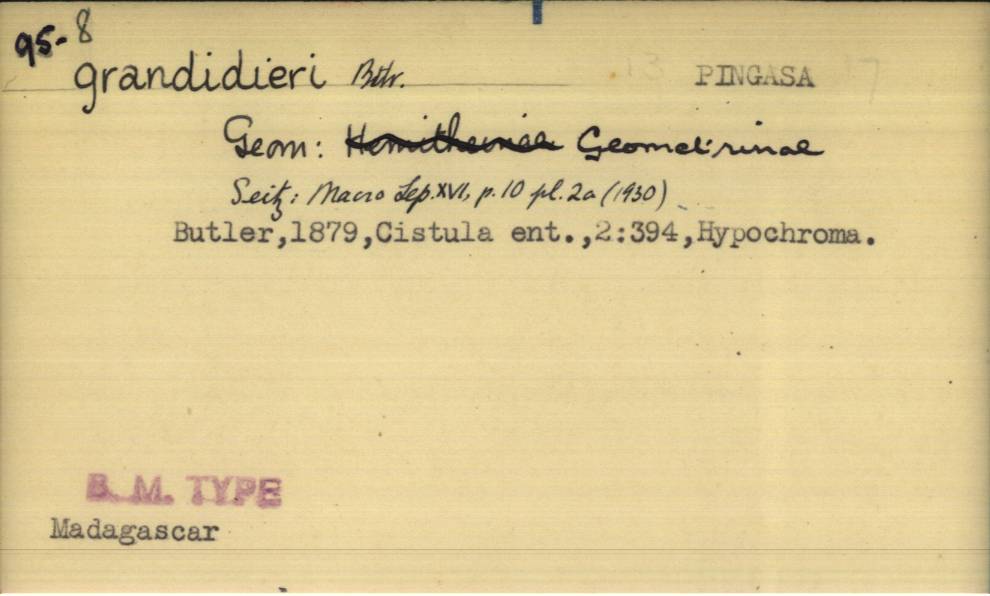 95-8
grandidieri Btlr. PINGASA
Geom: Hemitheinae Geometrinae
Seitz: Macro Lep. XVI, p. 10 pl. 2a (1930)
Butler,1879,Cistula ent.,2:394,Hypochroma.
B. M. TYPE
Madagascar